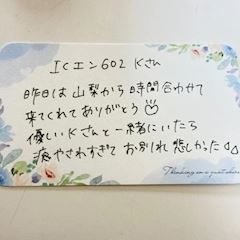 ICエン602 Kさん
昨日は山梨から時間合わせて
来てくれてありがとう♡
優しいKさんと一緒にいたら
癒やされすぎておわかれ悲しかった